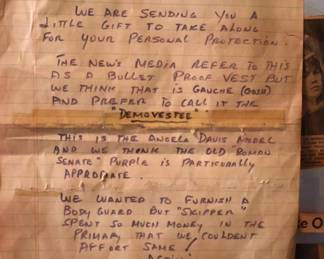 WE ARE SENDING YOU A
LITTLE GIFT TO TAKE ALONG
FOR YOUR PERSONAL PROTECTION.
THE NEWS MEDIA REFER TO THIS
AS A BULLET PROOF VEST BUT
WE THINK THAT IS GAUCHE (GOSH)
AND PREFER TO CALL IT THE
"DEMOVESTEE"
THIS IS THE ANGELA DAVIS MODEL
AND WE THINK THE OLD "ROMAN
SENATE" PURPLE IS PARTICUALLY
APPROPRIATE.
WE WANTED TO FURNISH A
BODY GUARD BUT "SKIPPER"
SPENT SO MUCH MONEY IN THE
PRIMARY THAT WE COULDENT
AFFORT SAME!